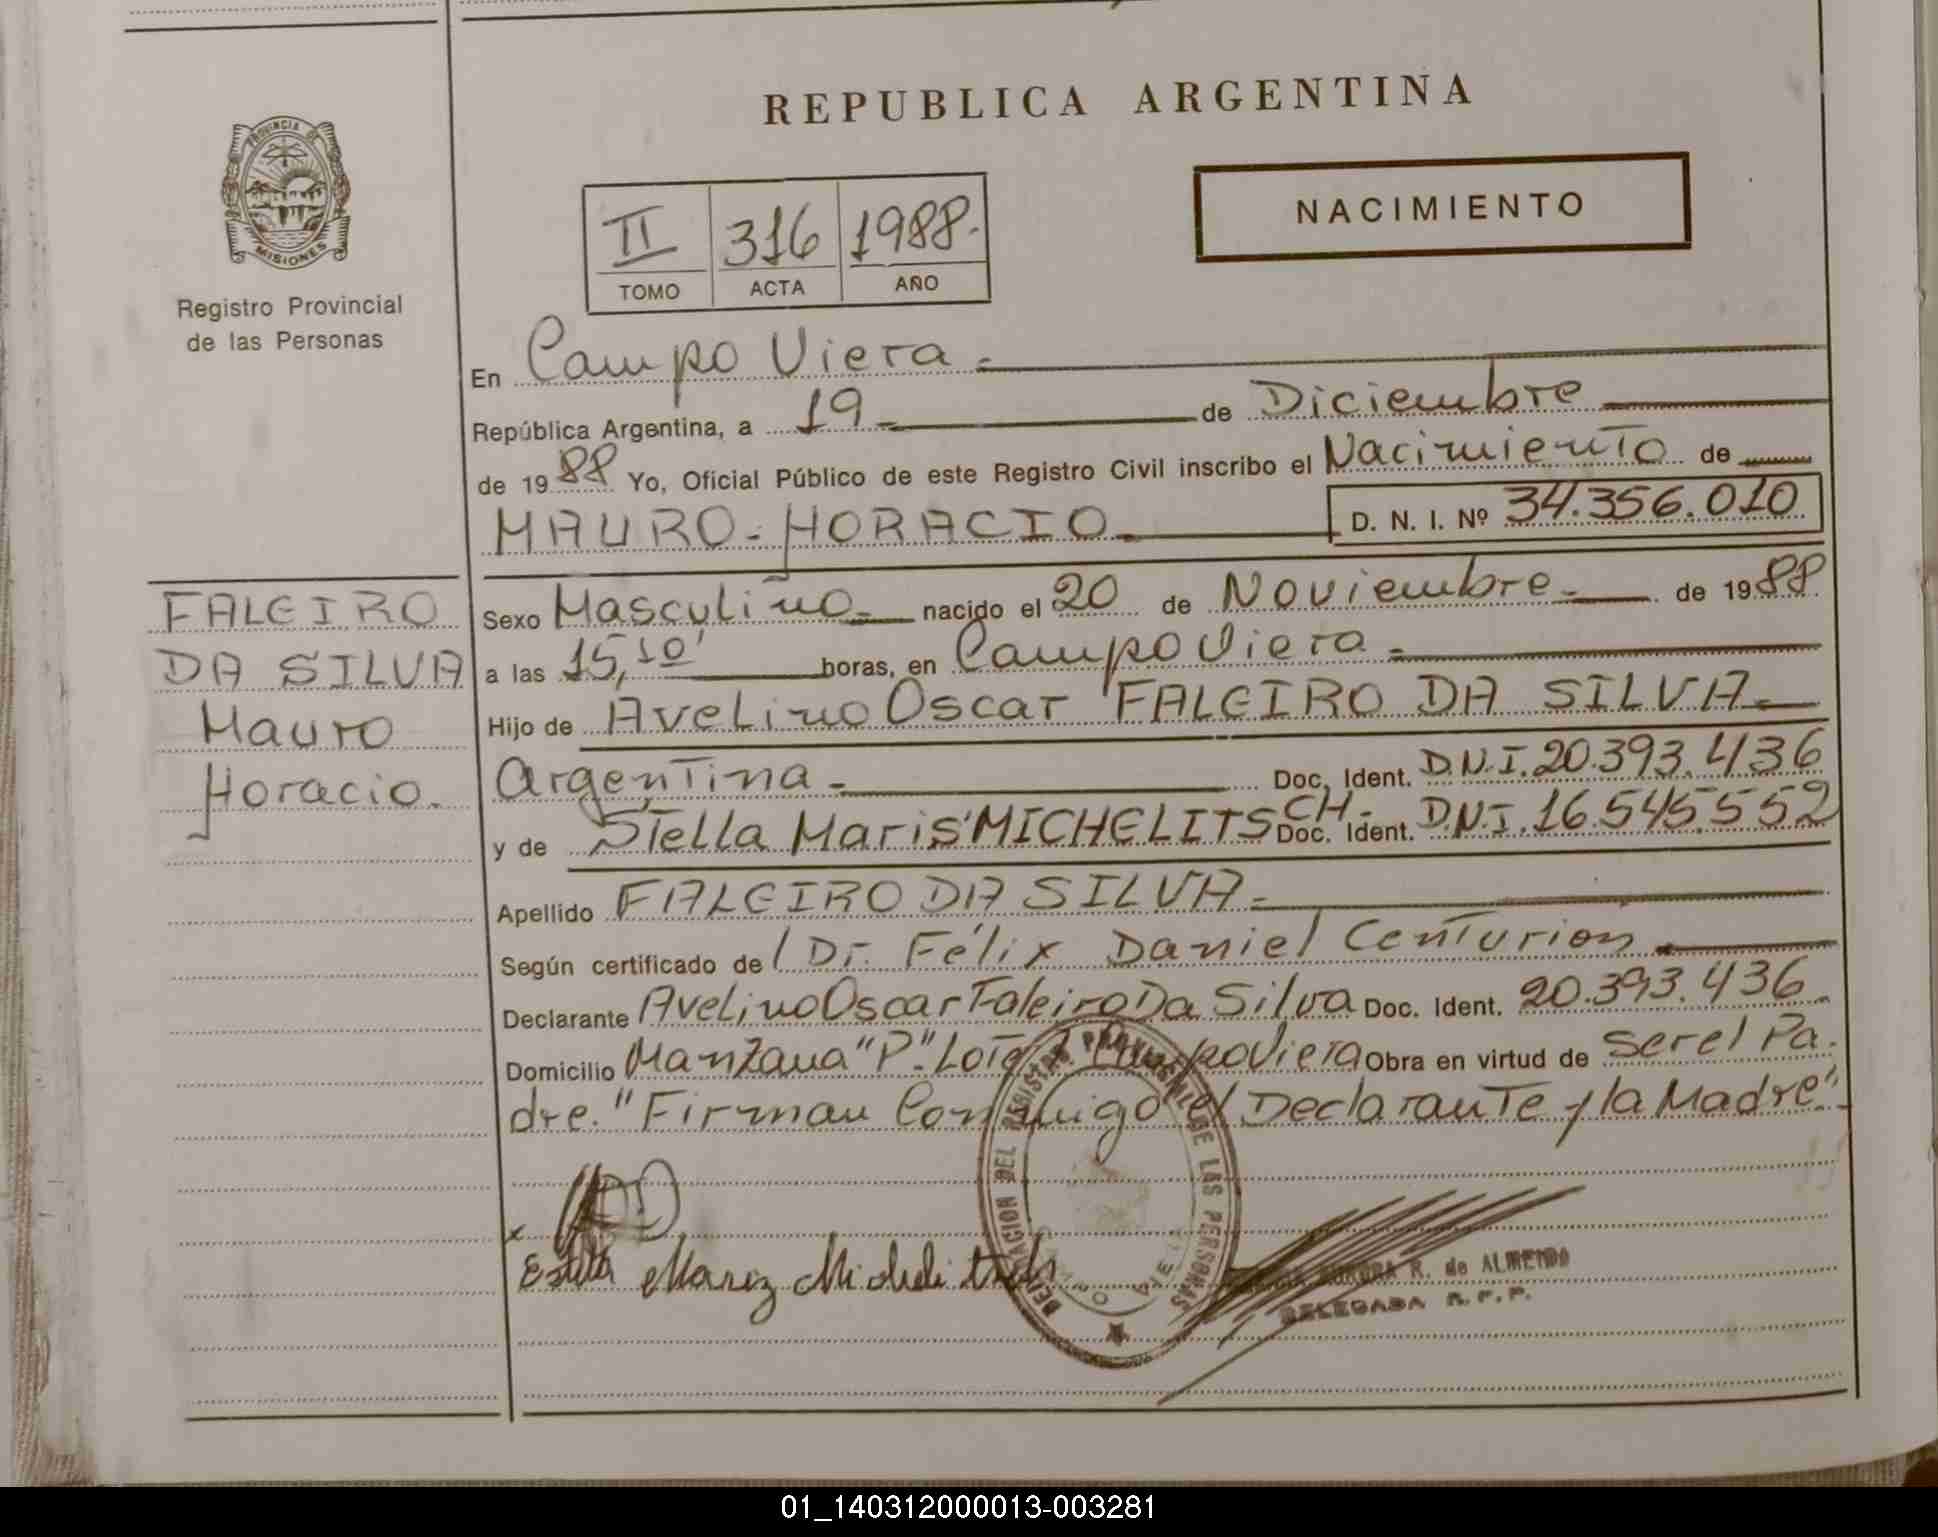 REPUBLICA ARGENTINA
PROVINCIA DE
MISIONES
Registro Provincial
de las Personas
NACIMIENTO
II 316 1988.
TOMO ACTA AÑO
En Campo Viera
República Argentina, a 19 de Diciembre
de 1988 Yo, Oficial Público de este Registro Civil inscribo el Nacimiento de
MAURO - HORACIO D. N. I. Nº 34.356.010
FALEIRO
DA SILVA
Mauro
Horacio.
Sexo Masculino nacido el 20 de Noviembre de 1988
a las 15,10' horas, en Campo Viera
Hijo de Avelino Oscar FALEIRO DA SILVA
Argentina Doc. Ident. D.N.I. 20.393.436
y de Stella Maris MICHELITSCH Doc. Ident. D.N.I. 16.545.552
Apellido FALEIRO DA SILVA
Según certificado del Dr. Félix Daniel Centurion
Declarante Avelino Oscar Faleiro Da Silva Doc. Ident. 20.393.436
Domicilio Manzana "P" Lote Campo Viera Obra en virtud de ser el Pa
dre. "Firman Conmigo el Declarante y la Madre".
DELEGACION DEL REGISTRO PROVINCIAL DE LAS PERSONAS
x
AURORA R. de ALMEIDA
DELEGADA R. P. P.
01_140312000013-003281